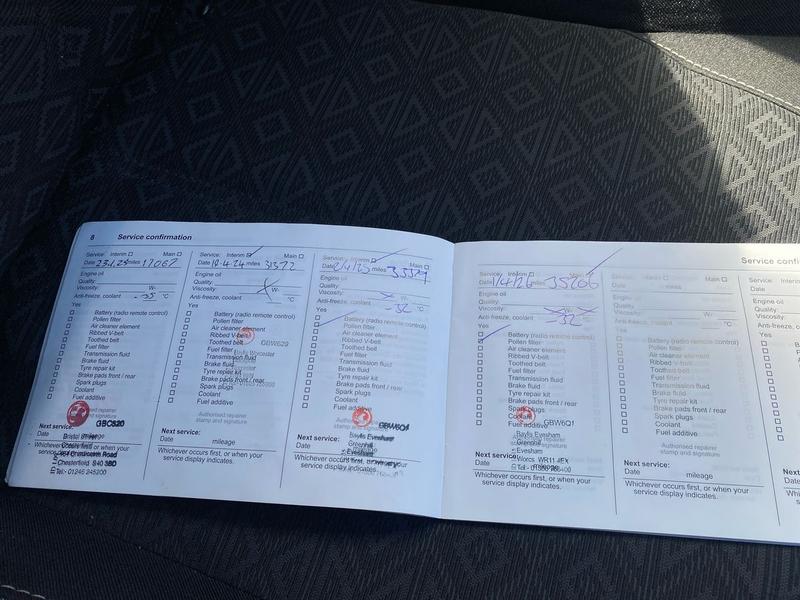 8 Service confirmation
Service: Interim Main
Date 23.1.23 miles 17067
Engine oil
Quality:
Viscosity: W-
Anti-freeze, coolant -35 °C
Yes
Battery (radio remote control)
Pollen filter
Air cleaner element
Ribbed V-belt
Toothed belt
Fuel filter
Transmission fluid
Brake fluid
Tyre repair kit
Brake pads front / rear
Spark plugs
Coolant
Fuel additive
Authorised repairer
stamp and signature
GBC820
Next service:
Date mileage
Whichever occurs first, or when your
service display indicates.
Chesterfield S40
Tel:- 01246 345200
Service: Interim Main
Date 18-4-24 miles 31372
Engine oil
Quality:
Viscosity: W-
Anti-freeze, coolant °C
Yes
Battery (radio remote control)
Pollen filter
Air cleaner element
Ribbed V-belt
Toothed belt
Fuel filter
Transmission fluid
Brake fluid
Tyre repair kit
Brake pads front / rear
Spark plugs
Coolant
Fuel additive
Authorised repairer
stamp and signature
Next service:
Date mileage
Whichever occurs first, or when your
service display indicates.
Service: Interim Main
Date 2/4/25 miles
Engine oil
Quality:
Viscosity: W-
Anti-freeze, coolant -32 °C
Yes
Battery (radio remote control)
Pollen filter
Air cleaner element
Ribbed V-belt
Toothed belt
Fuel filter
Transmission fluid
Brake fluid
Tyre repair kit
Brake pads front / rear
Spark plugs
Coolant
Fuel additive
Baylis Evesham
Next service:
Date
Whichever occurs first, or when your
service display indicates.
Service confi
Service: Interim Main
Date 1/4/26 miles 35206
Engine oil
Quality:
Viscosity: W-
Anti-freeze, coolant -32 °C
Yes
Battery (radio remote control)
Pollen filter
Air cleaner element
Ribbed V-belt
Toothed belt
Fuel filter
Transmission fluid
Brake fluid
Tyre repair kit
Brake pads front / rear
Spark plugs
Coolant
Fuel additive
GBW6Q1
Baylis Evesham
Greenhill
Evesham
Worcs WR11 4EX
Next service:
Date mileage
Whichever occurs first, or when your
service display indicates.
Service: Interim Main
Date miles
Engine oil
Quality:
Viscosity: W-
Anti-freeze, coolant °C
Yes
Battery (radio remote control)
Pollen filter
Air cleaner element
Ribbed V-belt
Toothed belt
Fuel filter
Transmission fluid
Brake fluid
Tyre repair kit
Brake pads front / rear
Spark plugs
Coolant
Fuel additive
Authorised repairer
stamp and signature
Next service:
Date mileage
Whichever occurs first, or when your
service display indicates.
Service: Interim
Date
Engine oil
Quality:
Viscosity:
Anti-freeze, c
Yes
Next se
Date
Whiche
se